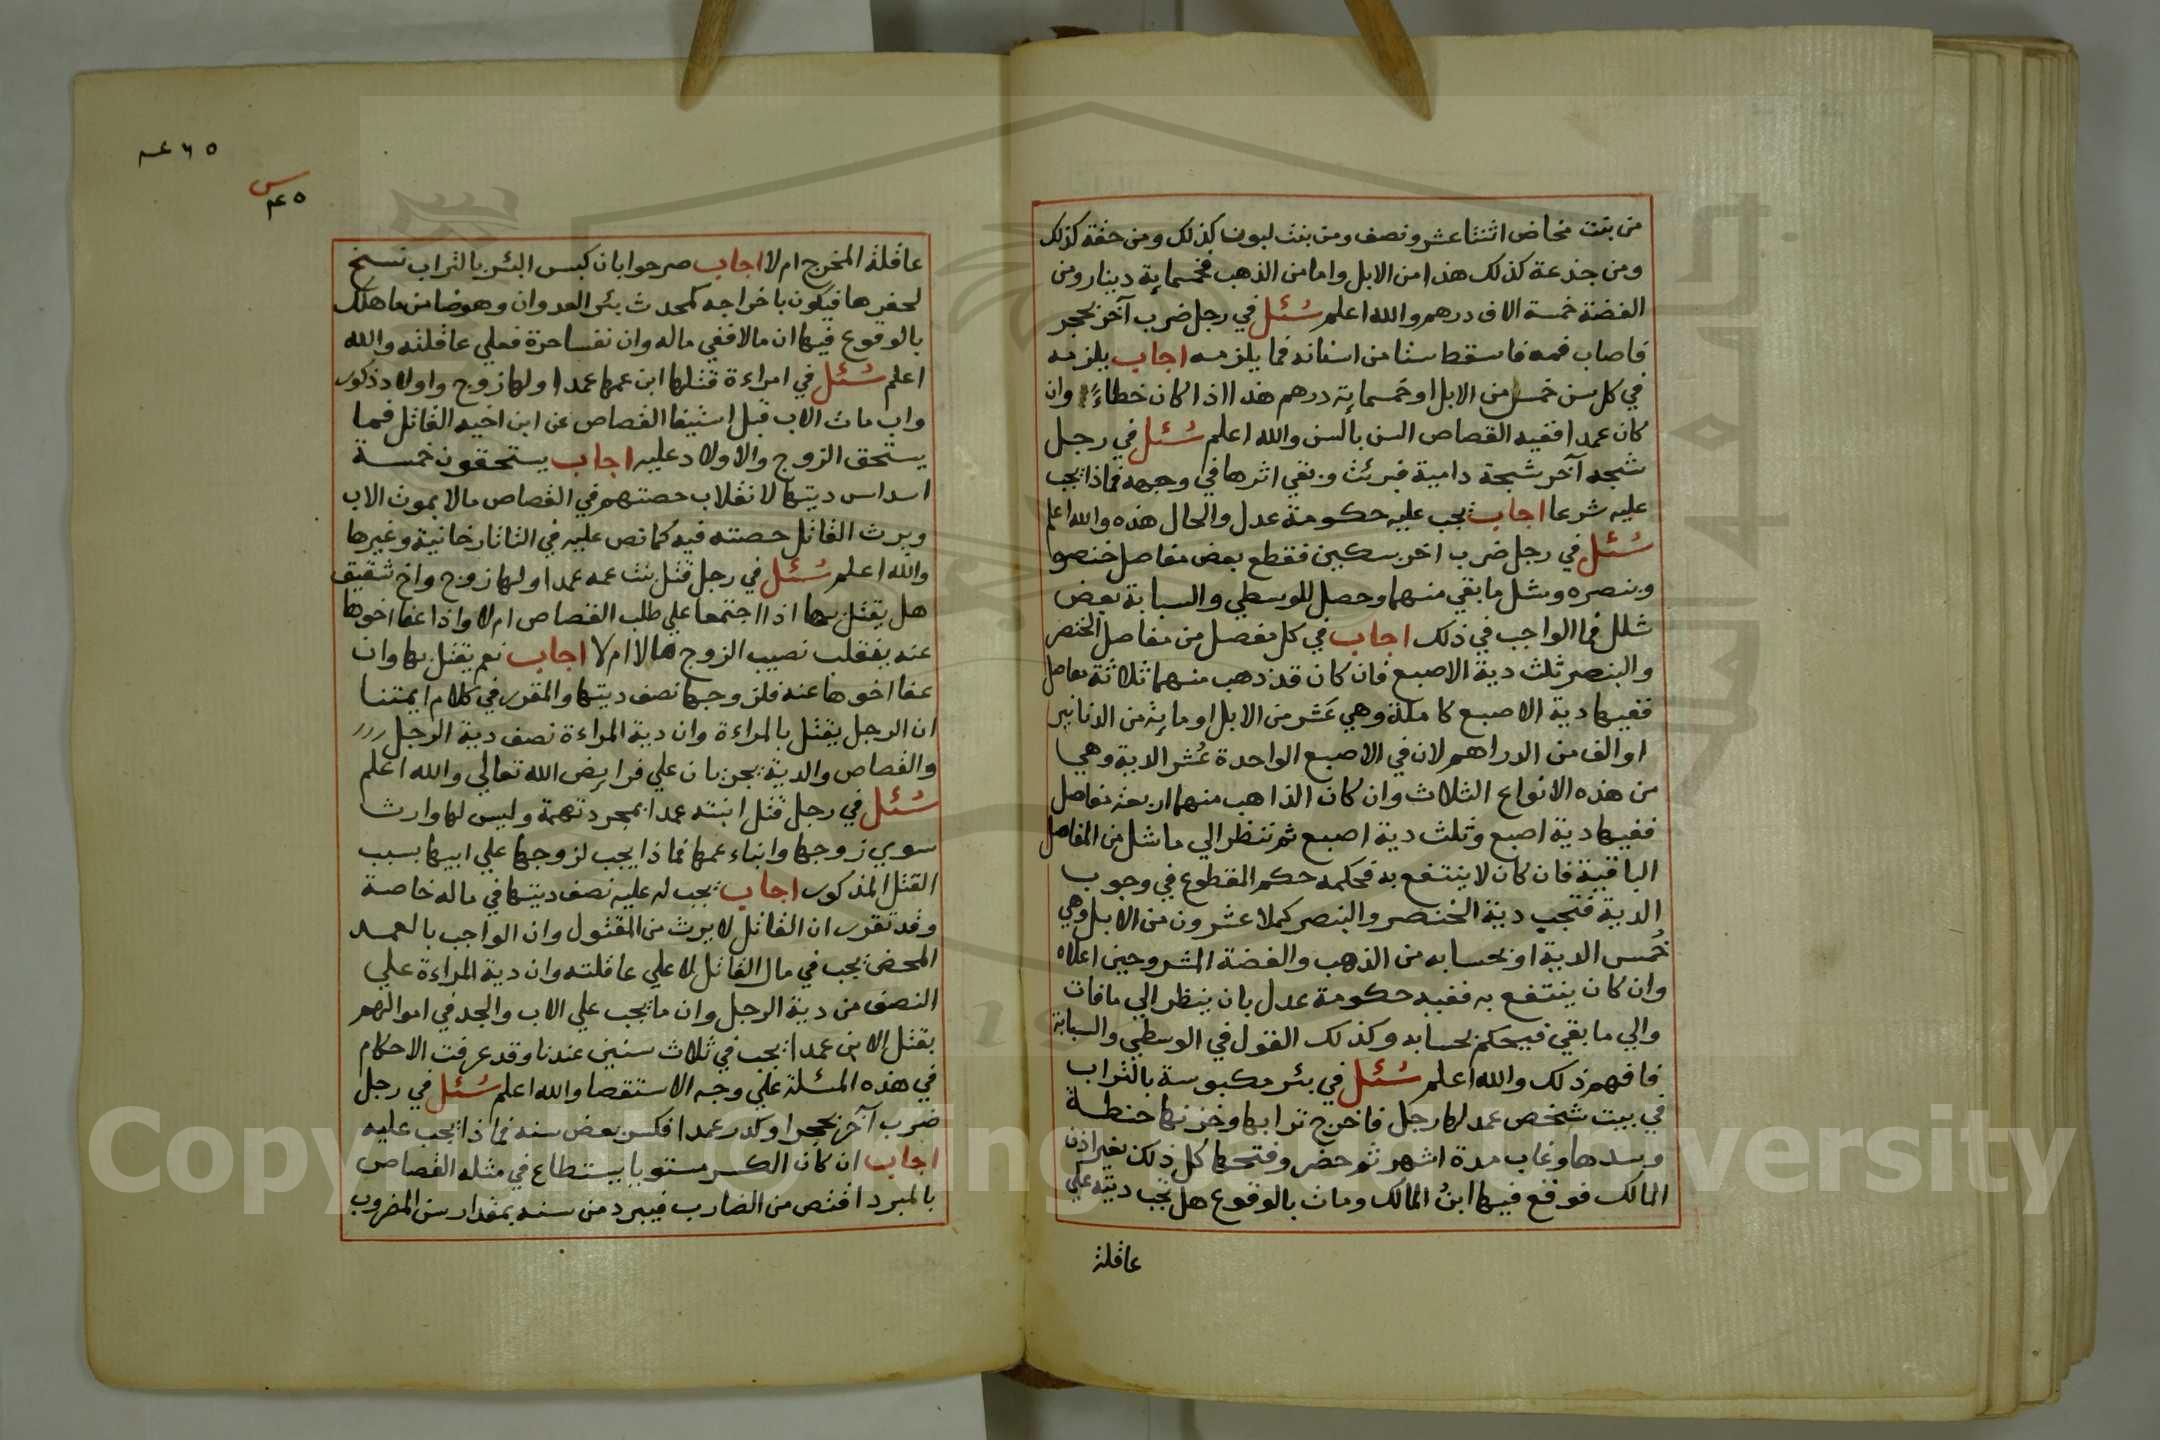 من بنت مخاض اثنتا عشر ونصف ومن بنت لبون كذلك ومن حقة كذلك
ومن جذعة كذلك هذا من الابل واما من الذهب فخمسماية دينار ومن
الفضة خمسة الاف درهم والله اعلم سُئل في رجل ضرب آخر بحجر
فاصاب فمه فاسقط سنا من اسنانه فما يلزمه اجاب يلزمه
في كل سن خمس من الابل او خمسماية درهم هذا اذا كان خطاءً وان
كان عمدا ففيه القصاص السن بالسن والله اعلم سُئل في رجل
شجه آخر شجة دامية فبرئت وبقي اثرها في وجهه فماذا يجب
عليه شرعا اجاب يجب عليه حكومة عدل والحال هذه والله اعلم
سُئل في رجل ضرب اخر بسكين فقطع بعض مفاصل خنصره
وبنصره وشل ما بقي منهما وحصل للوسطي والسبابة بعض
شلل فما الواجب في ذلك اجاب في كل مفصل من مفاصل الخنصر
والبنصر ثلث دية الاصبع فان كان قد ذهب منهما ثلاثة مفاصل
ففيها دية الاصبع كاملة وهي عَشر من الابل او ماية من الدنانير
او الف من الدراهم لان في الاصبع الواحدة عُشر الدية وهي
من هذه الانواع الثلاث وان كان الذاهب منهما اربعة مفاصل
ففيها دية اصبع وثلث دية اصبع ثم تنظر الي ما شل من المفاصل
الباقية فان كان لا ينتفع به فحكمه حكم المقطوع في وجوب
الدية فتجب دية الخنصر والبنصر كملا عشرون من الابل وهي
خُمس الدية او بحسابه من الذهب والفضة المشروحين اعلاه
وان كان ينتفع به ففيه حكومة عدل بان ينظر الي ما فات
والي ما بقي فيحكم بحسابه وكذلك القول في الوسطي والسبابة
فافهم ذلك والله اعلم سُئل في بئر مكبوسة بالتراب
في بيت شخص عمد لها رجل فاخرج ترابها وخزنها حنطة
وسدها وغاب مدة اشهر ثم حضر وفتحها كل ذلك بغير اذن
المالك فوقع فيها ابنُ المالك ومات بالوقوع هل تجب ديته علي
عاقلة
٤٦٥
س
٤٥
عاقلة المخرج ام لا اجاب صرحوا بان كبس البئر بالتراب نسخ
لحفرها فيكون باخراجه كمحدث بئر العدوان وهو ضامن ما هلك
بالوقوع فيها ان مالا ففي ماله وان نفسا حرة فعلي عاقلته والله
اعلم سُئل في امراءة قتلها ابن عمها عمدا ولها زوج واولاد ذكور
واب مات الاب قبل استيفا القصاص عن ابن اخيه القاتل فما
يستحق الزوج والاولاد عليه اجاب يستحقون خمسة
اسداس ديتها لانقلاب حصتهم في القصاص مالا بموت الاب
ويرث القاتل حصته فيه كما نص عليه في التاتارخانية وغيرها
والله اعلم سُئل في رجل قتل بنت عمه عمدا ولها زوج واخ شقيق
هل يقتل بها اذا اجتمعا علي طلب القصاص ام لا واذا عفا اخوها
عنه ينقلب نصيب الزوج مالا ام لا اجاب نعم يقتل بها وان
عفا اخوها عنه فلزوجها نصف ديتها والمقرر في كلام ايمتنا
ان الرجل يقتل بالمراءة وان دية المراءة نصف دية الرجل
والقصاص والدية يجريان علي فرايض الله تعالي والله اعلم
سُئل في رجل قتل ابنته عمدا بمجرد تهمة وليس لها وارث
سوي زوجها وابناء عمها فماذا يجب لزوجها علي ابيها بسبب
القتل المذكور اجاب يجب له عليه نصف ديتها في ماله خاصة
وقد تقرر ان القاتل لا يرث من المقتول وان الواجب بالعمد
المحض يجب في مال القاتل لا علي عاقلته وان دية المراءة علي
النصف من دية الرجل وان ما يجب علي الاب والجد في اموالهم
بقتل الابن عمدا يجب في ثلاث سنين عندنا وقد عرفت الاحكام
في هذه المسئلة علي وجه الاستقصا والله اعلم سُئل في رجل
ضرب آخر بحجر او كدر عمدا فكسر بعض سنه فماذا يجب عليه
اجاب ان كان الكسر مستويا يستطاع في مثله القصاص
بالمبرد اقتص من الضارب فيبرد من سنه بمقدار سن المضروب
Copyright © King Saud University